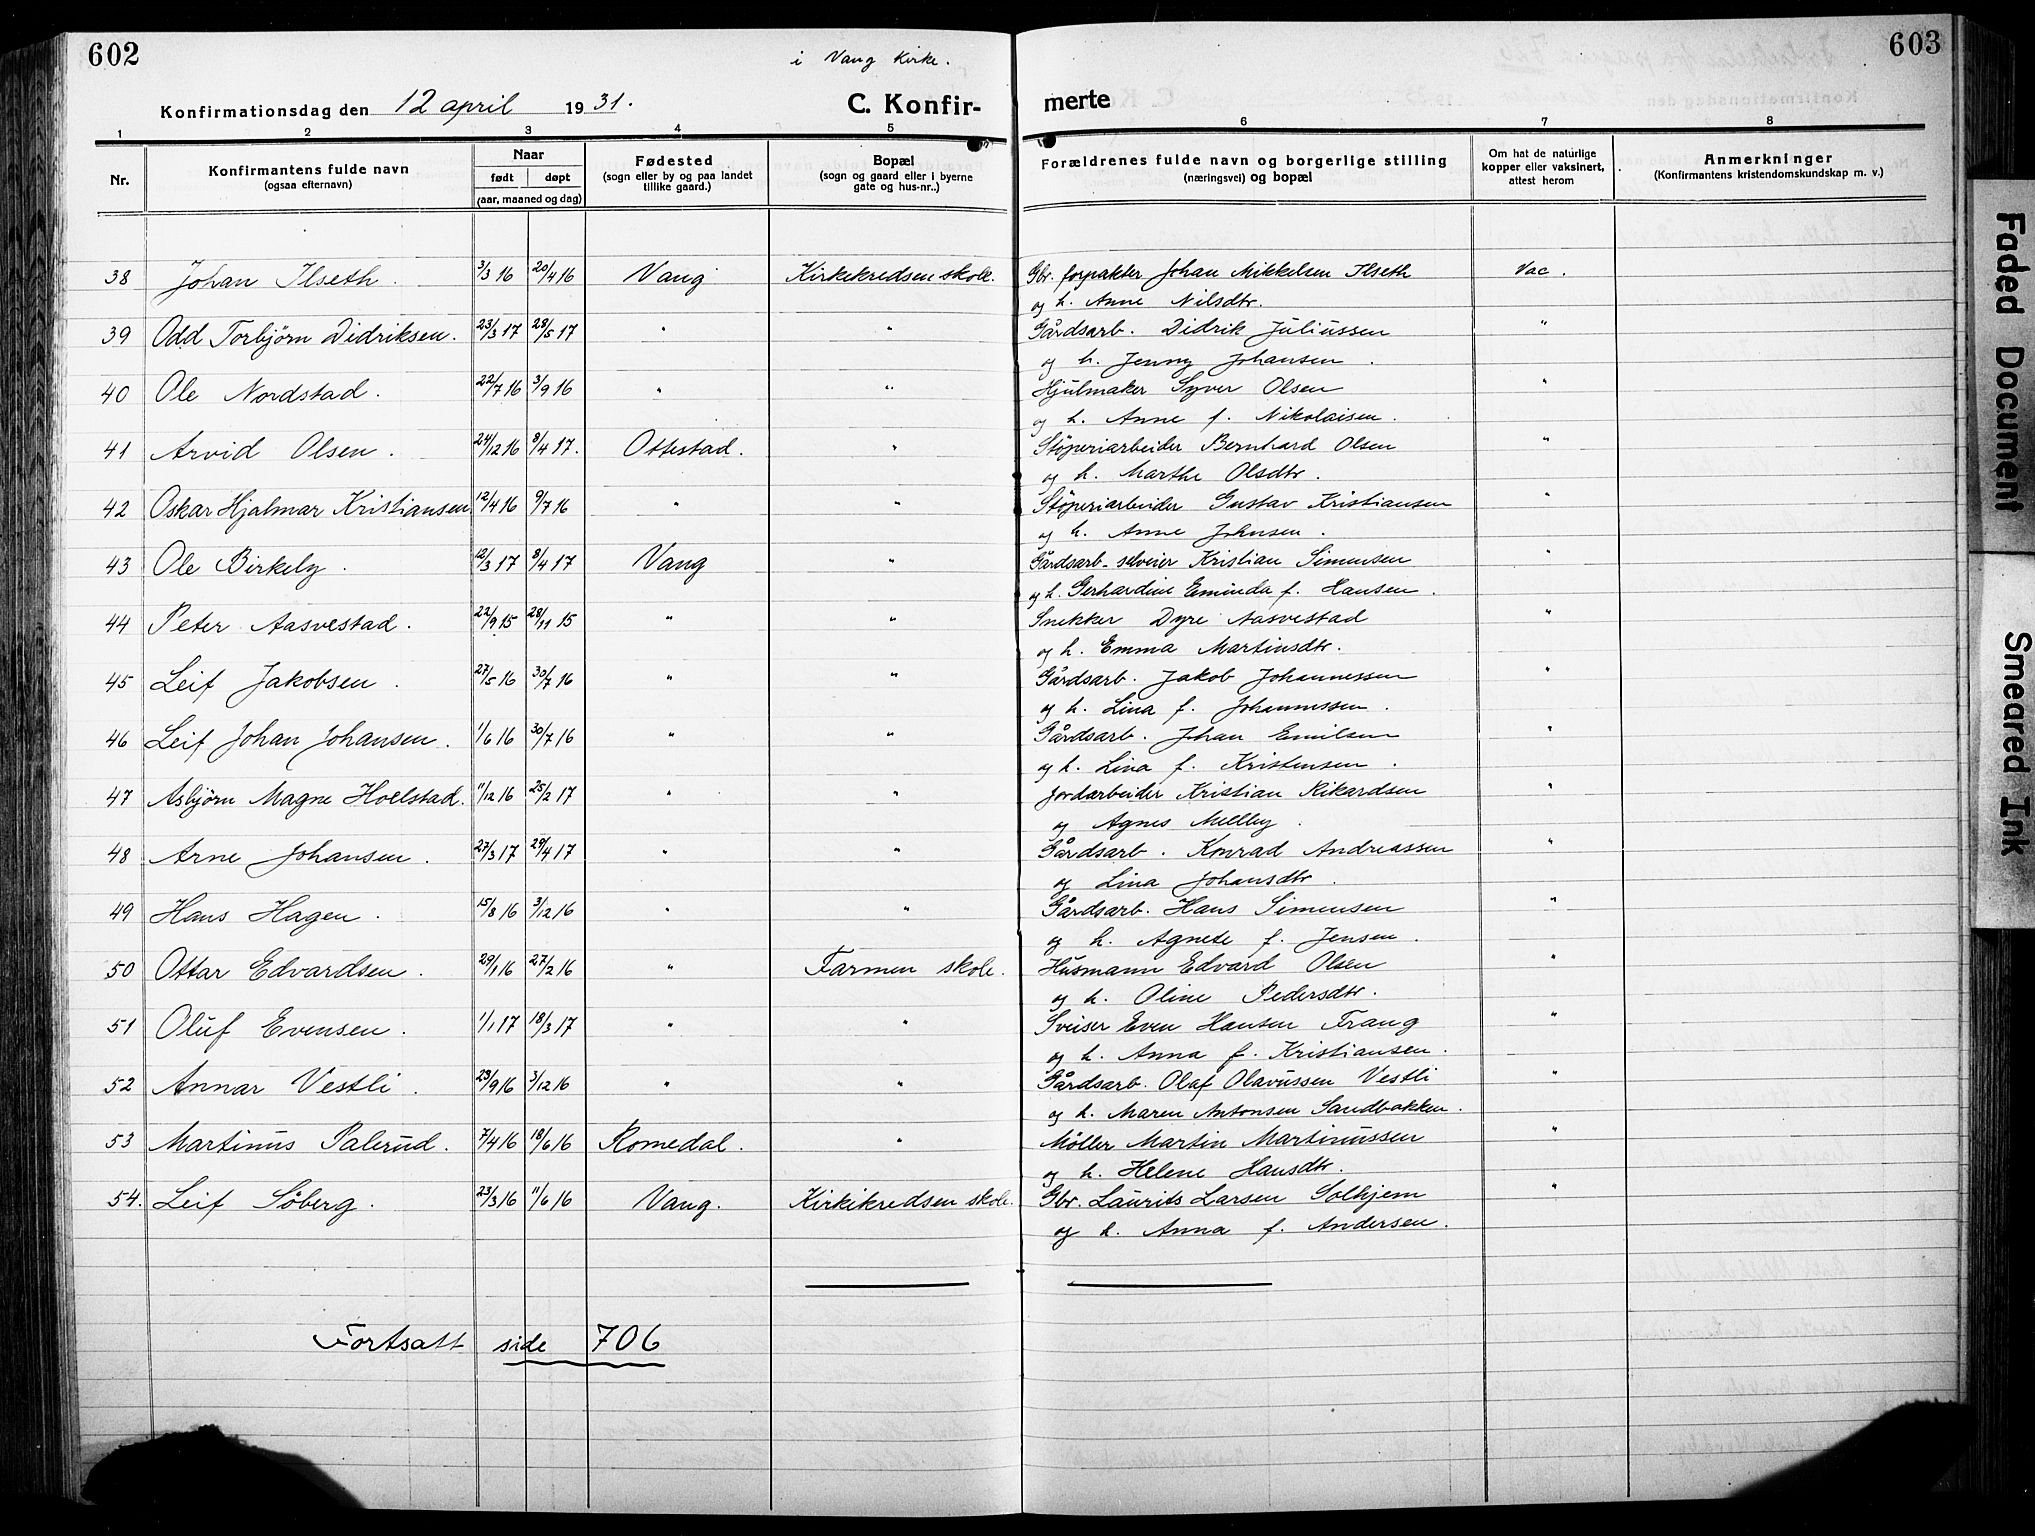 602
603
i Vang Kirke.
Konfirmationsdag den 12 april 1931.
C. Konfir-
merte
1 2 3 4 5 6 7 8
Nr.
Konfirmantens fulde navn
(ogsaa efternavn)
Naar
født døpt
(aar, maaned og dag)
Fødested
(sogn eller by og paa landet
tillike gaard.)
Bopæl
(sogn og gaard eller i byerne
gate og hus-nr..)
Forældrenes fulde navn og borgerlige stilling
(næringsvei) og bopæl
Om hat de naturlige
kopper eller vaksinert,
attest herom
Anmerkninger
(Konfirmantens kristendomskundskap m. v.)
38 Johan Ilseth. 3/3 16 20/4 16 Vang Kirkekredsen skole. Gbr. forpakter Johan Mikkelsen Ilseth Vac.
og h. Anne Nilsdtr.
39 Odd Torbjørn Didriksen. 23/3 17 28/5 17 " " Gårdsarb. Didrik Juliussen "
og h. Jenny Johansen.
40 Ole Nordstad. 22/7 16 3/9 16 " " Hjulmaker Syver Olsen "
og h. Anne f. Nikolaisen.
41 Arvid Olsen. 24/12 16 8/4 17. Ottestad. " Støperiarbeider Bernhard Olsen "
og h. Marthe Olsdtr.
42 Oskar Hjalmar Kristiansen 12/4 16 9/7 16 " " Støperiarbeider Gustav Kristiansen "
og h. Anne Johnsen.
43 Ole Birkely. 12/3 17 8/4 17 Vang " Gårdsarb-selveier Kristian Simensen "
og h. Gerhardine Eminda f. Hansen.
44 Peter Aasvestad. 22/9 15 28/11 15 " " Snekker Dyre Aasvestad "
og h. Emma Martinsdtr.
45 Leif Jakobsen. 27/5 16 30/7 16 " " Gårdsarb. Jakob Johannessen "
og h. Lina f. Johannessen.
46 Leif Johan Johansen. 1/6 16 30/7 16 " " Gårdsarb. Johan Emilsen "
og h. Lina f. Kristensen.
47 Asbjørn Magne Hoelstad. 11/12 16 25/2 17 " " Jordarbeider Kristian Rikardsen "
og Agnes Melby.
48 Arne Johansen. 27/3 17 29/4 17 " " Gårdsarb. Konrad Andreassen "
og Lina Johansdtr.
49 Hans Hagen. 15/8 16 3/12 16 " " Gårdsarb. Hans Simensen "
og h. Agnete f. Jensen.
50 Ottar Edvardsen. 29/1 16 27/2 16 " Farmen skole. Husmann Edvard Olsen "
og h. Oline Pedersdtr.
51 Oluf Evensen. 1/1 17 18/3 17 " " Sveiser Even Hansen Frang "
og h. Anna f. Kristiansen.
52 Annar Vestli. 23/9 16 3/12 16 " " Gårdsarb. Olaf Olavussen Vestli "
og h. Maren Antonsen Sandbakken.
53 Martinus Palerud. 7/4 16 18/6 16 Romedal. " Møller Martin Martinussen "
og h. Helene Hansdtr.
54. Leif Søberg. 23/3 16 11/6 16 Vang. Kirkikredsen skole. Gbr. Laurits Larsen Solhjem "
og h. Anna f. Andersen.
Fortsatt side 706
Faded Document
Smeared Ink